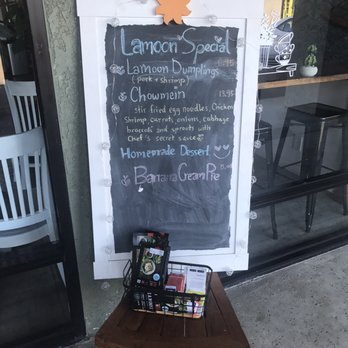 Lamoon Special
Lamoon Dumplings
(pork + shrimp)
Chowmein 13.95
stir fried egg noodles, Chicken
Shrimp, carrots, onions, cabbage
broccoli and sprouts with
Chef's secret sauce
Homemade Dessert
Banana Cream Pie